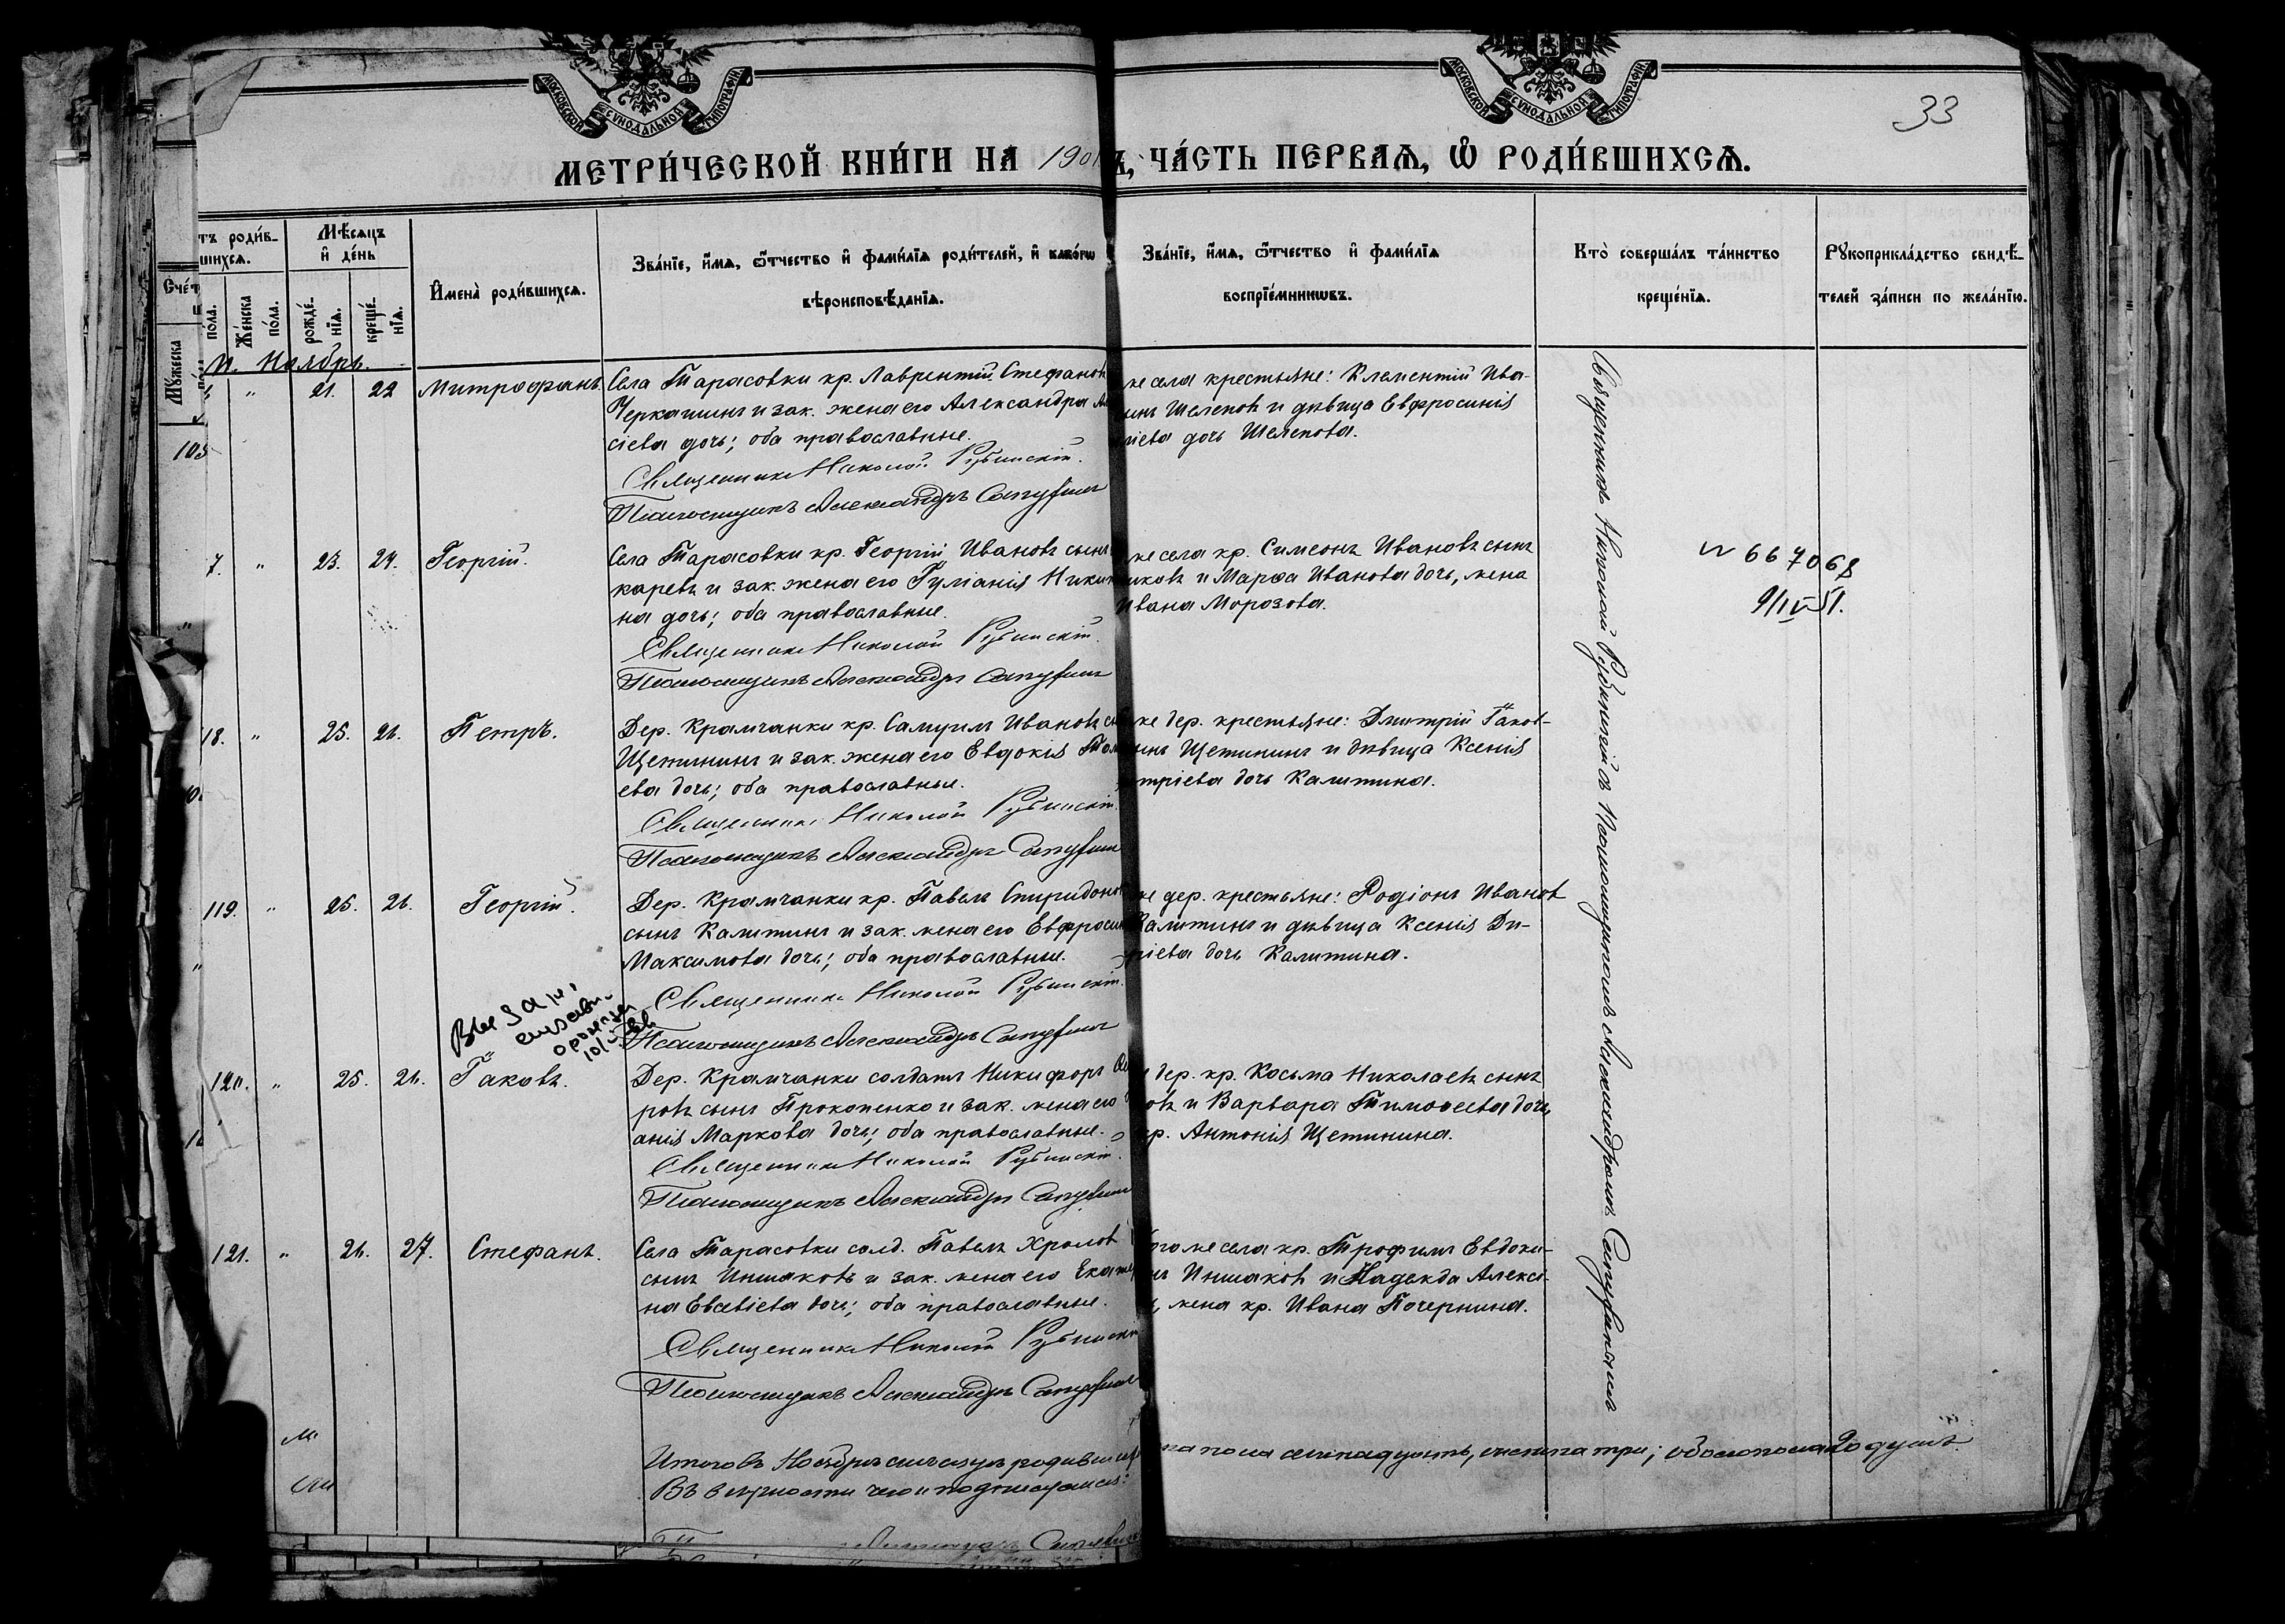 МОСКОВСКОЙ СѴНОДАЛЬНОЙ ТИПОГРАФІИ
МОСКОВСКОЙ СѴНОДАЛЬНОЙ ТИПОГРАФІИ
33
МЕТРИ́ЧЕСКОЙ КНИ́ГИ НА 1901
, ЧА́СТЬ ПЕРВАѦ, Ѿ РОДИ́ВШИХСѦ.
тъ роди́в-
шихсѧ.
Мѣ́сѧцъ
и҆ де́нь
Счет
Мꙋ́жеска
по́ла.
Же́нска
по́ла.
рожде́-
нїѧ.
креще́-
нїѧ.
И҆мена̀ роди́вшихсѧ.
Зва́нїе, и҆́мѧ, ѻ҆́тчество и҆ фами́лїѧ роди́телей, и҆ како́гѡ
вѣроисповѣ́данїѧ.
Зва́нїе, и҆́мѧ, ѻ҆́тчество и҆ фами́лїѧ
воспрїе́мникѡвъ.
Кто̀ соверша́лъ та́инство
креще́нїѧ.
Рꙋкоприкла́дство свидѣ́-
телей за́писи по жела́нїю.
М. Ноябрь.
" 21. 22 Митрофанъ. Села Тарасовки кр. Лаврентій Стефановъ
Черкашинъ и зак. жена его Александра
сіева дочь; оба православные.
Священникъ Николай Рубинскій.
Псаломщикъ Александръ
же села крестьяне: Климентій Ива-
Шелеповъ и дѣвица Евфросинія
дочь Шелепова.
105
7. " 23. 24. Георгій. Села Тарасовки кр. Георгій Ивановъ сынъ
каревъ и зак. жена его Гуліанія
на дочь; оба православные.
Священникъ Николай Рубинскій.
Псаломщикъ Александръ
же села кр. Симеонъ Ивановъ сынъ
иковъ и Марѳа Иванова дочь, жена
Ивана Морозова.
N 667068
18. " 25. 26. Петръ. Дер. Крамчанки кр. Самуилъ Ивановъ
Щетининъ и зак. жена его Евдокія
ева дочь; оба православные.
Священникъ Николай Рубинскій.
Псаломщикъ Александръ
же дер. крестьяне: Дмитрій Яков-
Щетининъ и дѣвица Ксенія
тріева дочь Калитина.
119. " 25. 26. Георгій. Дер. Крамчанки кр. Павелъ Спиридонов
сынъ Калитинъ и зак. жена его Евфросин
Максимова дочь; оба православные.
Священникъ Николай Рубинскій.
Псаломщикъ Александръ
же дер. крестьяне: Родіонъ Ивановъ
Калитинъ и дѣвица Ксенія Ди-
ріева дочь Калитина.
120. " 25. 26. Іаковъ. Дер. Крамчанки солдатъ Никифоръ
ровъ сынъ Прокопенко и зак. жена его
анія Маркова дочь; оба православные.
Священникъ Николай Рубинскій.
Псаломщикъ Александръ
дер. кр. Косьма Николаевъ сынъ
овъ и Варвара Тимоѳеева дочь,
кр. Антонія Щетинина.
121. " 26. 27. Стефанъ. Села Тарасовки солд. Павелъ Хролов
сынъ Иншаковъ и зак. жена его Екатер
на Евсевіева дочь; оба православные.
Священникъ Николай Рубинскій
Псаломщикъ Александръ
того же села кр. Трофимъ Евдоки-
Иншаковъ и Надежда Алексі-
жена кр. Ивана Почернина.
Священникъ Николай Рубинскій съ Псаломщикомъ Александромъ
Итого въ Ноябрѣ мѣсяцѣ родившихся
на пола семнадцать, женска три; обоего пола 20 душъ.
Въ вѣрности чего и подписуемся: